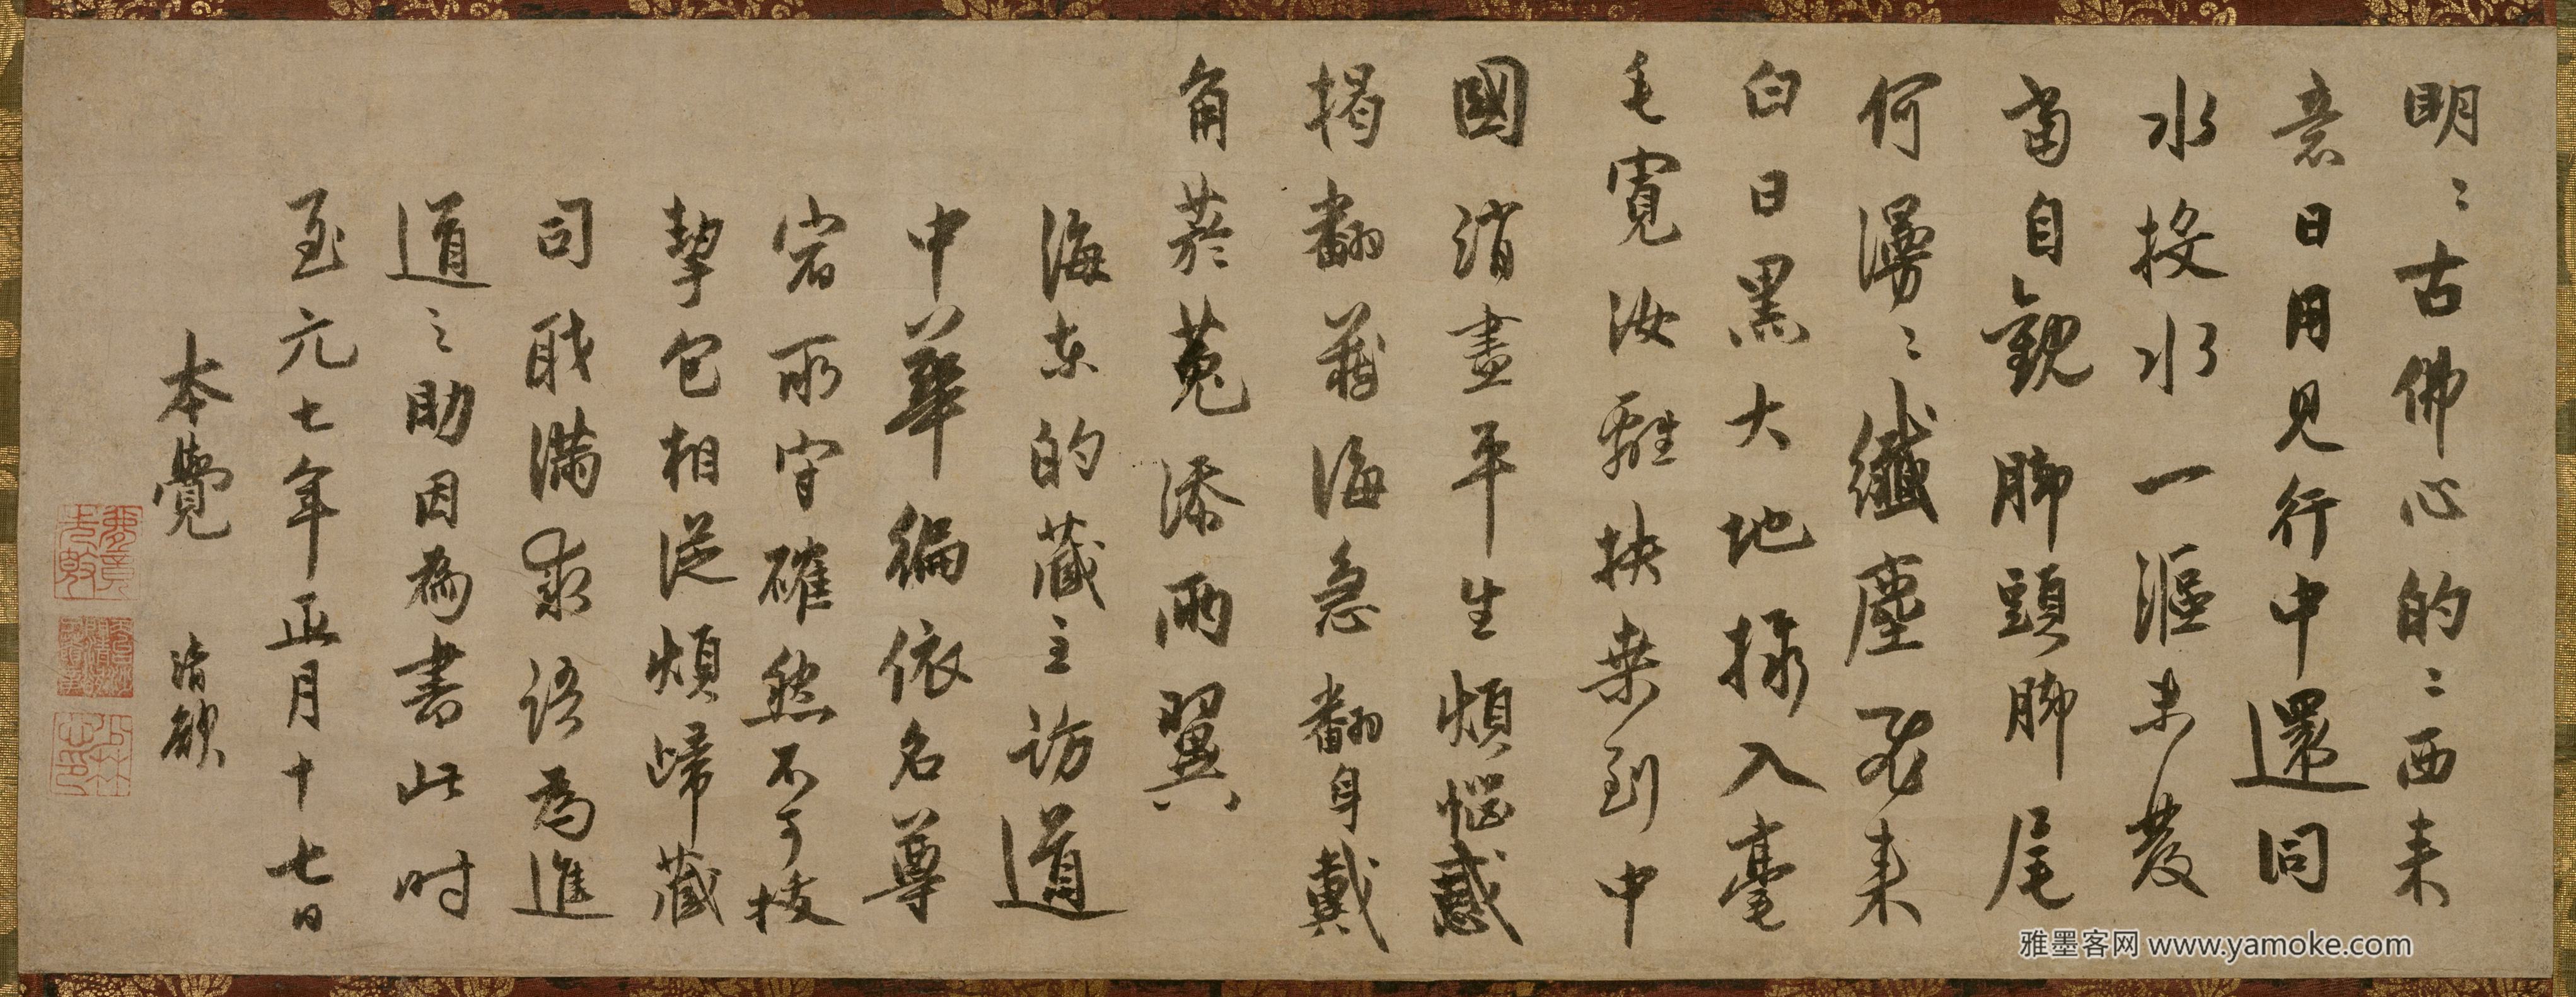 明〻古佛心的〻西来
意日用見行中還同
水投水一漚未發
當自觀腳頭腳尾
何漫〻纖塵不来
白日黑大地撮入毫
毛寬汝雖扶桒到中
國消盡平生煩惱惑
揭翻藏海急翻身戴
角於菟添兩翼
海东的藏主訪道
中華徧依名尊
宿所守確然不可拔
挈包相從煩歸藏
司職滿求語為進
道之助因為書此时
至元七年正月十七日
本覺 清欲
雅墨客网 www.yamoke.com